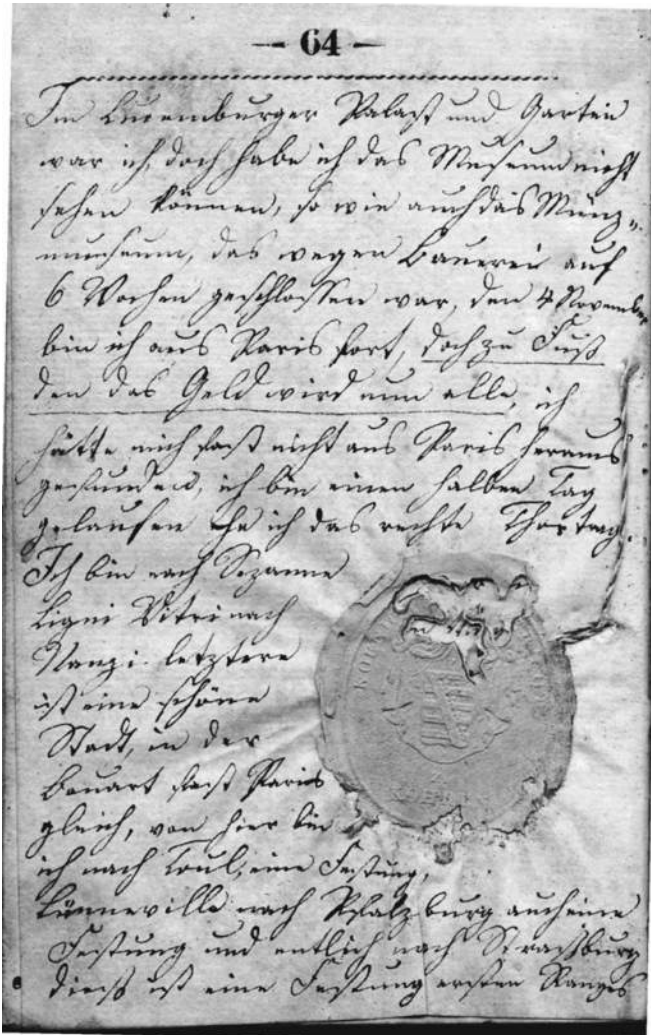 — 64 —
Im Luxemburger Palast und Garten
war ich, doch habe ich das Museum nicht
sehen können, so wie auch das Münz„
museum, das wegen Bauerei auf
6 Wochen geschlossen war, den 4 November
bin ich aus Paris fort, doch zu Fuß
den das Geld wird nun alle, ich
hätte mich fast nicht aus Paris heraus
gefunden, ich bin einen halben Tag
gelaufen ehe ich das rechte Thor traf.
Ich bin nach Sezanne
Ligni Vitri nach
Nanzi. letztere
ist eine schöne
Stadt, in der
Bauart fast Paris
gleich, von hier bin
ich nach Toul, eine Festung,
Lünneville nach Pfalzburg auch eine
Festung und entlich nach Straßburg
dieß ist eine Festung ersten Ranges